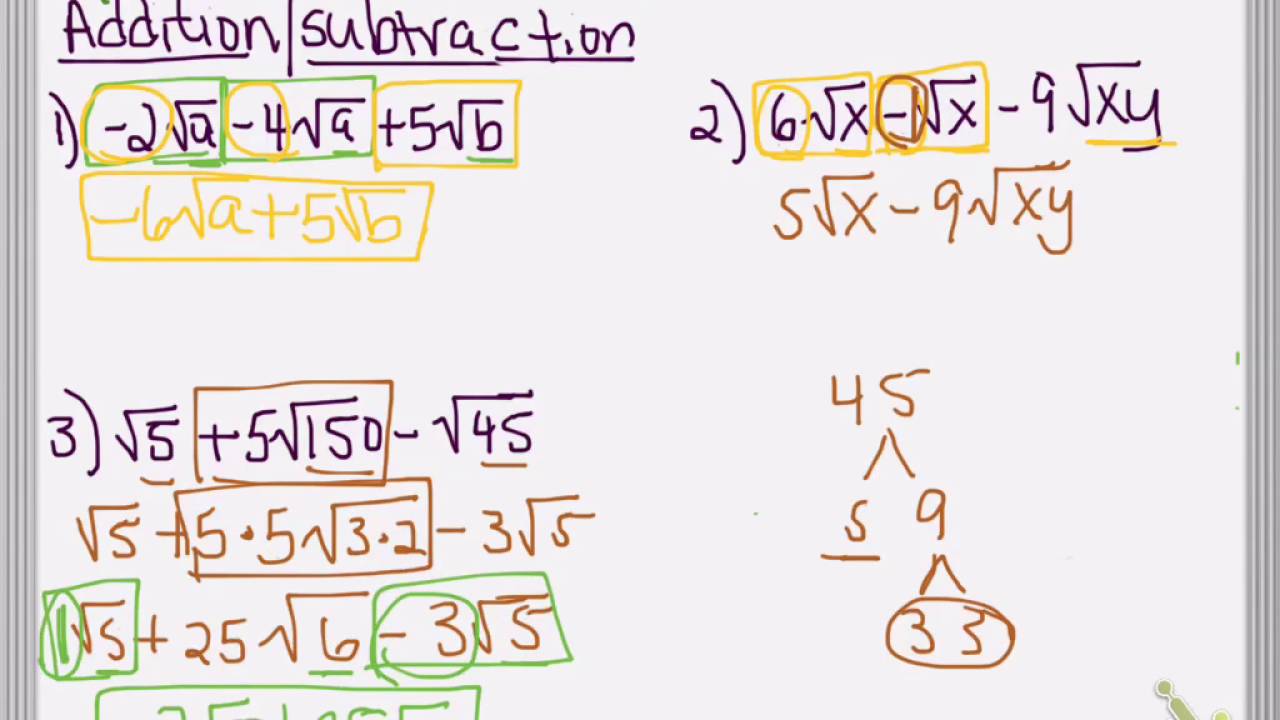 Addition/subtraction
1) -2√a -4√a +5√b
-6√a+5√b
2) 6√x -1√x -9√xy
5√x-9√xy
3) √5 +5√150 -√45
√5 +5·5√3·2 -3√5
1√5 +25√6 -3√5
45
5 9
3 3